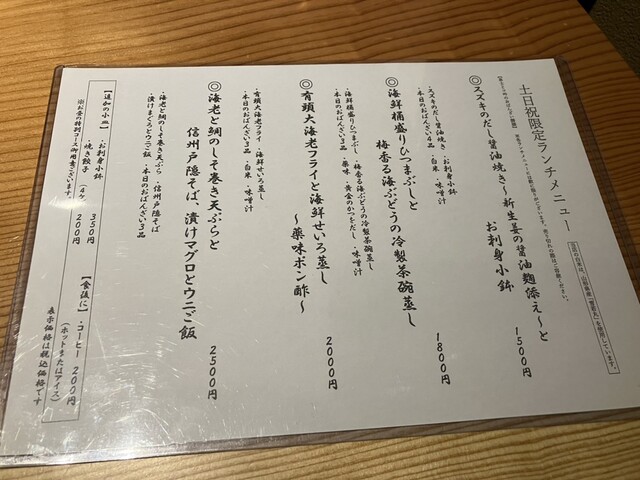 土日祝限定ランチメニュー
◎スズキのだし醤油焼き～新生姜の醤油麹添え～と
お刺身小鉢
1500円
・スズキのだし醤油焼き ・お刺身小鉢
・本日のおばんざい4品 ・白米 ・味噌汁
◎海鮮桶盛りひつまぶしと
梅香る海ぶどうの冷製茶碗蒸し
1800円
・海鮮桶盛りひつまぶし ・梅香る海ぶどうの冷製茶碗蒸し
・本日のおばんざい3品 ・薬味 ・黄金のかつをだし ・味噌汁
◎有頭大海老フライと海鮮せいろ蒸し
～薬味ポン酢～
2000円
・有頭大海老フライ ・海鮮せいろ蒸し
・本日のおばんざい3品 ・白米 ・味噌汁
◎海老と鯛のしそ巻き天ぷらと
信州戸隠そば、漬けマグロとウニご飯
2500円
・海老と鯛のしそ巻き天ぷら ・信州戸隠そば
・漬けまぐろとウニご飯 ・本日のおばんざい3品
【追加の小皿】
・お刺身小鉢 350円
・焼き餃子 (4ケ) 200円
※お昼の特別コース御用意ございます
【食後に】
・コーヒー 200円
(ホットまたはアイス)
表示価格は税込価格です